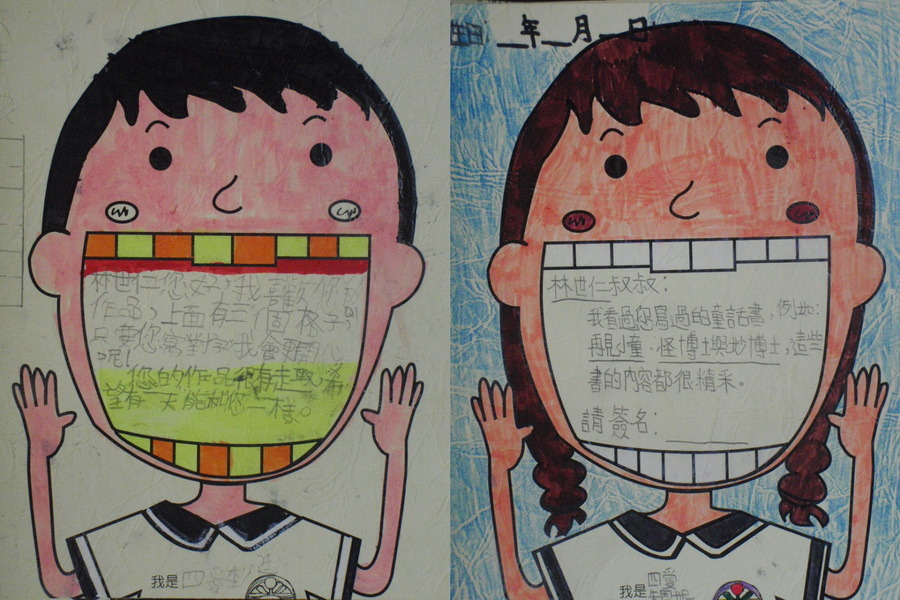 林世仁您好,我喜歡你的
作品,上面有三個格子,
只要您寫對
我會更開心
呢!
您的作品很有走戲,希
望有一天能和您一樣。
我是四愛
年 月 日
林世仁叔叔:
我看過您寫過的童話書,例如:
再見小童、怪博士與妙博士,這些
書的內容都很精采。
請簽名:
我是四愛